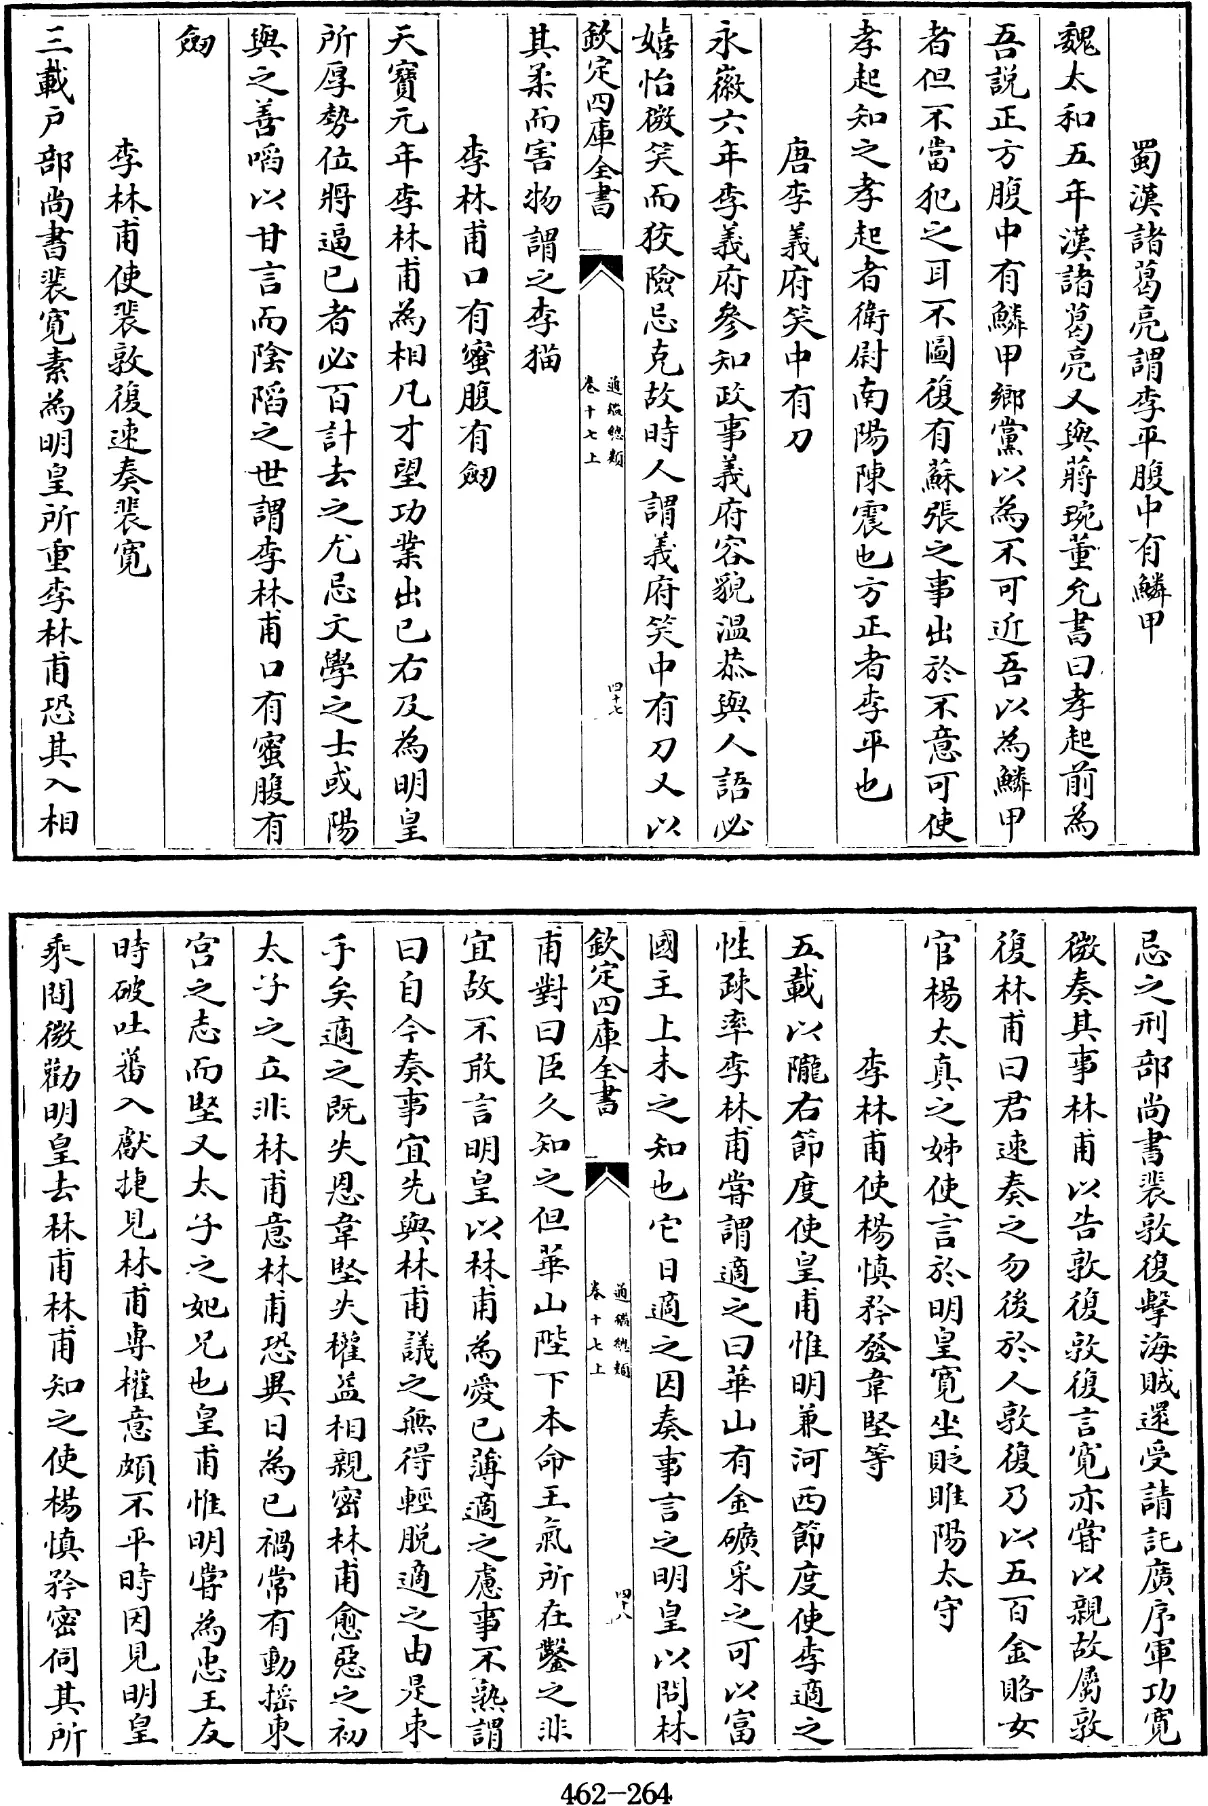 蜀漢諸葛亮謂李平腹中有鱗甲
魏太和五年漢諸葛亮又與蔣琬董允書曰孝起前為
吾説正方腹中有鱗甲鄉黨以為不可近吾以為鱗甲
者但不當犯之耳不圖復有蘇張之事出於不意可使
孝起知之孝起者衛尉南陽陳震也方正者李平也
唐李義府笑中有刀
永徽六年李義府參知政事義府容貌溫恭與人語必
嬉怡微笑而狡險忌克故時人謂義府笑中有刀又以
欽定四庫全書
通鑑總類
卷十七上
四十七
其柔而害物謂之李猫
李林甫口有蜜腹有劒
天寶元年李林甫為相凡才望功業出已右及為明皇
所厚勢位將逼已者必百計去之尤忌文學之士或陽
與之善啗以甘言而陰陷之世謂李林甫口有蜜腹有
劒
李林甫使裴敦復速奏裴寛
三載戸部尚書裴寛素為明皇所重李林甫恐其入相
忌之刑部尚書裴敦復擊海賊還受請託廣序軍功寛
微奏其事林甫以告敦復敦復言寛亦嘗以親故屬敦
復林甫曰君速奏之勿後於人敦復乃以五百金賂女
官楊太真之姊使言於明皇寛坐貶睢陽太守
李林甫使楊慎矜發韋堅等
五載以隴右節度使皇甫惟明兼河西節度使李適之
性疎率李林甫嘗謂適之曰華山有金礦采之可以富
國主上未之知也它日適之因奏事言之明皇以問林
欽定四庫全書
通鑑總類
卷十七上
四十八
甫對曰臣久知之但華山陛下本命王氣所在鑿之非
宜故不敢言明皇以林甫為愛已薄適之慮事不熟謂
曰自今奏事宜先與林甫議之無得輕脱適之由是束
手矣適之既失恩韋堅失權益相親密林甫愈惡之初
太子之立非林甫意林甫恐異日為已禍常有動摇東
宮之志而堅又太子之妃兄也皇甫惟明嘗為忠王友
時破吐蕃入獻捷見林甫專權意頗不平時因見明皇
乘間微勸明皇去林甫林甫知之使楊慎矜密伺其所
462-264